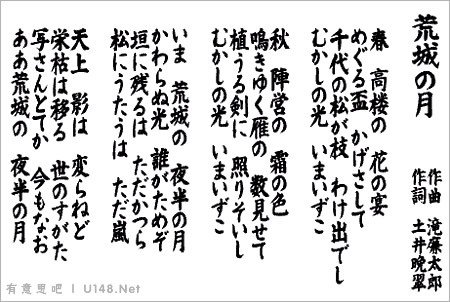 荒城の月
作曲 滝廉太郎
作詞 土井晩翠
春 高楼の 花の宴
めぐる盃 かげさして
千代の松が枝 わけ出でし
むかしの光 いまいずこ
秋 陣営の 霜の色
鳴きゆく雁の 数見せて
植うる剣に 照りそいし
むかしの光 いまいずこ
いま 荒城の 夜半の月
かわらぬ光 誰がためぞ
垣に残るは ただかつら
松にうたうは ただ嵐
天上 影は 変らねど
栄枯は移る 世のすがた
写さんとてか 今もなお
ああ荒城の 夜半の月
有意思吧 | U148.Net